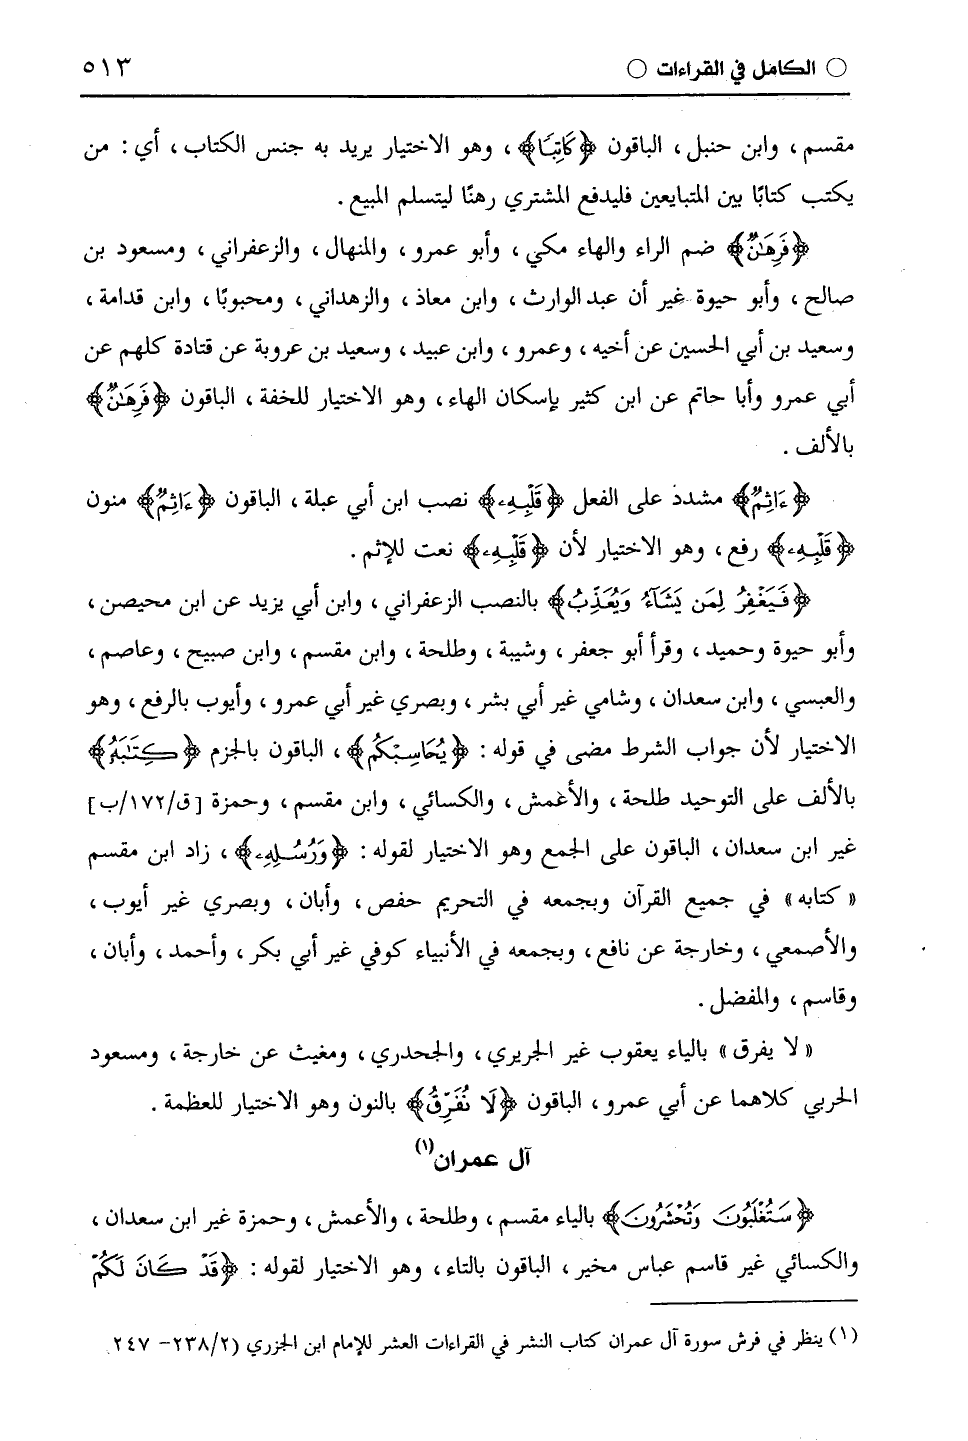 ○ الكامل في القراءات ○ ٥١٣
مقسم، وابن حنبل، الباقون ﴿كَاتِبًا﴾، وهو الاختيار يريد به جنس الكتاب، أي: من
يكتب كتابًا بين المتبايعين فليدفع المشتري رهنًا ليتسلم المبيع.
﴿فَرِهَٰنٌ﴾ ضم الراء والهاء مكي، وأبو عمرو، والمنهال، والزعفراني، ومسعود بن
صالح، وأبو حيوة غير أن عبد الوارث، وابن معاذ، والزهداني، ومحبوبًا، وابن قدامة،
وسعيد بن أبي الحسين عن أخيه، وعمرو، وابن عبيد، وسعيد بن عروبة عن قتادة كلهم عن
أبي عمرو وأبا حاتم عن ابن كثير بإسكان الهاء، وهو الاختيار للخفة، الباقون ﴿فَرِهَٰنٌ﴾
بالألف.
﴿ءَاثِمٌ﴾ مشدد على الفعل ﴿قَلْبِهِۦ﴾ نصب ابن أبي عبلة، الباقون ﴿ءَاثِمٌ﴾ منون
﴿قَلْبِهِۦ﴾ رفع، وهو الاختيار لأن ﴿قَلْبِهِۦ﴾ نعت للإثم.
﴿فَيَغْفِرُ لِمَن يَشَآءُ وَيُعَذِّبُ﴾ بالنصب الزعفراني، وابن أبي يزيد عن ابن محيصن،
وأبو حيوة وحميد، وقرأ أبو جعفر، وشيبة، وطلحة، وابن مقسم، وابن صبيح، وعاصم،
والعبسي، وابن سعدان، وشامي غير أبي بشر، وبصري غير أبي عمرو، وأيوب بالرفع، وهو
الاختيار لأن جواب الشرط مضى في قوله: ﴿يُحَاسِبْكُم﴾، الباقون بالجزم ﴿كِتَٰبَهُۥ﴾
بالألف على التوحيد طلحة، والأعمش، والكسائي، وابن مقسم، وحمزة [ق/١٧٢/ب]
غير ابن سعدان، الباقون على الجمع وهو الاختيار لقوله: ﴿وَرُسُلِهِۦ﴾، زاد ابن مقسم
«كتابه» في جميع القرآن وبجمعه في التحريم حفص، وأبان، وبصري غير أيوب،
والأصمعي، وخارجة عن نافع، وبجمعه في الأنبياء كوفي غير أبي بكر، وأحمد، وأبان،
وقاسم، والمفضل.
«لا يفرق» بالياء يعقوب غير الجريري، والجحدري، ومغيث عن خارجة، ومسعود
الحربي كلاهما عن أبي عمرو، الباقون ﴿لَا نُفَرِّقُ﴾ بالنون وهو الاختيار للعظمة.
آل عمران(١)
﴿سَتُغْلَبُونَ وَتُحْشَرُونَ﴾ بالياء مقسم، وطلحة، والأعمش، وحمزة غير ابن سعدان،
والكسائي غير قاسم عباس مخير، الباقون بالتاء، وهو الاختيار لقوله: ﴿قَدْ كَانَ لَكُمْ
(١) ينظر في فرش سورة آل عمران كتاب النشر في القراءات العشر للإمام ابن الجزري (٢/٢٣٨- ٢٤٧.